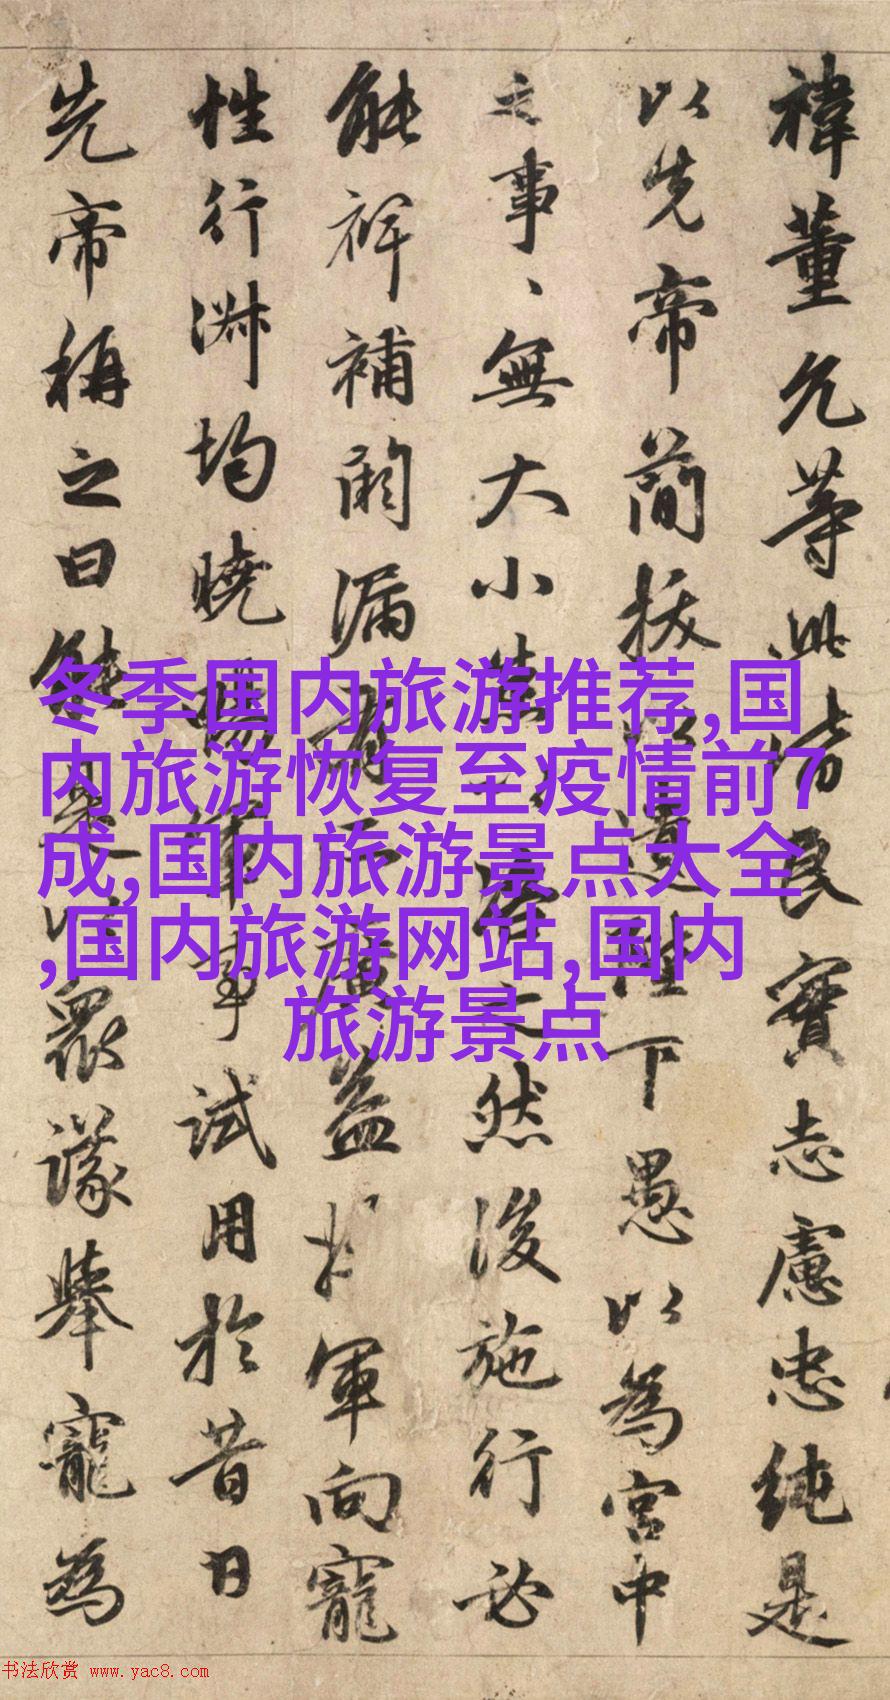 禕董允等此皆良實志慮忠純是
以先帝簡拔以遺陛下愚以為宮中
之事、無大小悉以咨之然後施行必
能裨補闕漏有所廣益將軍向寵
性行淑均曉暢軍事試用於昔日
先帝稱之曰能是以眾議舉寵為
冬季国内旅游推荐,国
内旅游恢复至疫情前7
成,国内旅游景点大全
,国内旅游网站,国内
旅游景点
书法欣赏 www.yac8.com